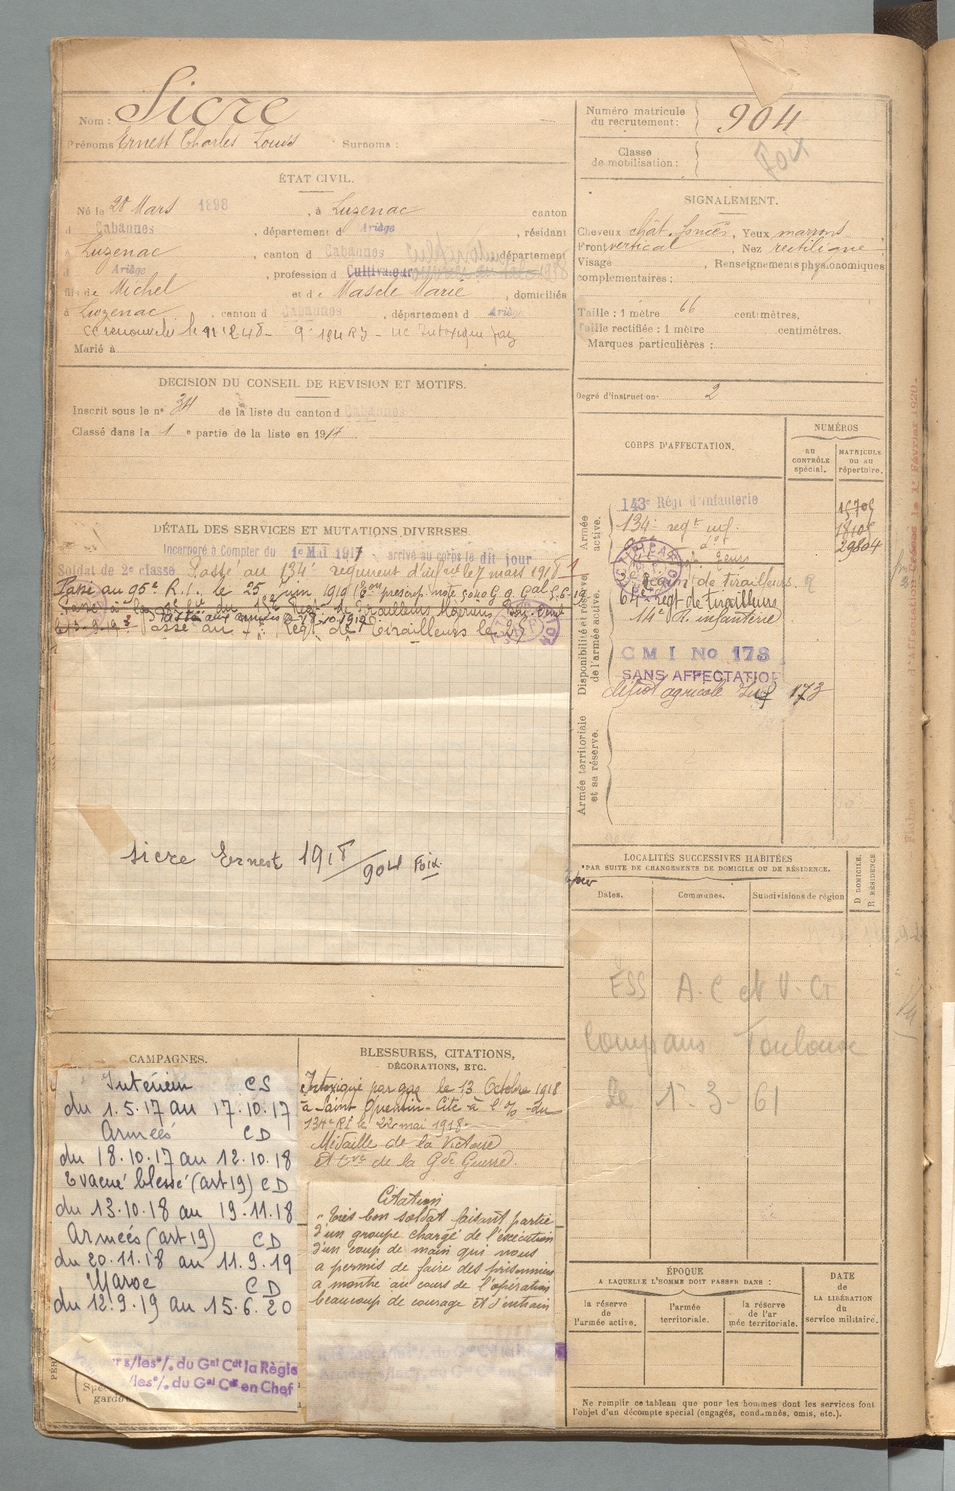 Nom : Sicre
Prénoms Ernest Charles Louis Surnoms :
ÉTAT CIVIL.
Né le 28 Mars 1898, à Luzenac canton
d Cabannes, département d Ariège, résidant
à Luzenac, canton d Cabannes département
d Ariège, profession d Cultivateur
fils de Michel et de Masde Marie, domiciliés
à Luzenac, canton d Cabannes, département d Ariège
Marié à
DÉCISION DU CONSEIL DE REVISION ET MOTIFS.
Inscrit sous le n° 34 de la liste du canton d Cabannes
Classé dans la 1 e partie de la liste en 1917
DÉTAIL DES SERVICES ET MUTATIONS DIVERSES
Incorporé à Compter du 1er Mai 1917 arrivé au corps le dit jour
Soldat de 2e classe. Passé au 134e regiment d'infrie le 7 mars 1918
Passé au 95e R.I. le 25 juin 1919
Passé au 7e Regt de Tirailleurs le
Sicre Ernest 1918/904 Foix
CAMPAGNES.
Intérieur CS
du 1.5.17 au 17.10.17
Armées CD
du 18.10.17 au 12.10.18
Evacué blessé (art 19) CD
du 13.10.18 au 19.11.18
Armées (art 19) CD
du 20.11.18 au 11.9.19
Maroc CD
du 12.9.19 au 15.6.20
s/les o/. du Gal Cdt la Règie
/les o/. du Gal Cdt en Chef
BLESSURES, CITATIONS,
DÉCORATIONS, ETC.
Intoxiqué par gaz le 13 Octobre 1918
à Saint Quentin - Cité à l'o/o du
134e RI le 22 mai 1918.
Médaille de la Victoire
et Cve de la Gde Guerre.
Citation
"Très bon soldat faisant partie
d'un groupe chargé de l'exécution
d'un coup de main qui nous
a permis de faire des prisonniers
a montré au cours de l'opération
beaucoup de courage et d'entrain
Numéro matricule
du recrutement : 904
Foix
Classe
de mobilisation :
SIGNALEMENT.
Cheveux chât. foncés, Yeux marrons
Front vertical, Nez rectiligne
Visage, Renseignements physionomiques
complémentaires :
Taille : 1 mètre 66 centimètres.
Taille rectifiée : 1 mètre centimètres.
Marques particulières :
Degré d'instruction : 2
CORPS D'AFFECTATION.
NUMÉROS
AU CONTRÔLE spécial.
MATRICULE ou au répertoire.
Armée active.
143e Régt d'Infanterie
134e regt inf.
29804
Disponibilité et réserve de l'armée active.
64e regt de tirailleurs
14e R. infanterie
C M I No 173
SANS AFFECTATION
dépôt agricole 173
Armée territoriale et sa réserve.
LOCALITÉS SUCCESSIVES HABITÉES
PAR SUITE DE CHANGEMENTS DE DOMICILE OU DE RÉSIDENCE.
Dates. Communes. Subdivisions de région
D DOMICILE.
R RÉSIDENCE
ESS A.C et V.G
Compans Toulouse
le 1-3-61
ÉPOQUE
A LAQUELLE L'HOMME DOIT PASSER DANS :
la réserve de l'armée active.
l'armée territoriale.
la réserve de l'armée territoriale.
DATE de LA LIBÉRATION du service militaire.
Ne remplir ce tableau que pour les hommes dont les services font
l'objet d'un décompte spécial (engagés, condamnés, omis, etc.).